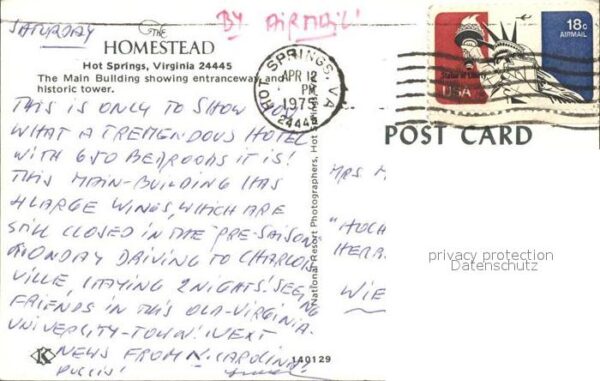 SATURDAY
BY AIRMAIL!
The
HOMESTEAD
Hot Springs, Virginia 24445
The Main Building showing entranceway and
historic tower.
HOT SPRINGS, VA
APR 12
PM
1975
24445
18c
AIRMAIL
Statue of Liberty
USA
POST CARD
THIS IS ONLY TO SHOW YOU
WHAT A TREMENDOUS HOTEL
WITH 650 BEDROOMS IT IS!
THIS MAIN-BUILDING HAS
4 LARGE WINGS, WHICH ARE
STILL CLOSED IN THE "PRE-SAISON"
MONDAY DRIVING TO CHARLOTS
VILLE, STAYING 2 NIGHTS! SEEING
FRIENDS IN THIS OLD-VIRGINIA-
UNIVERSITY-TOWN! NEXT
NEWS FROM N. CAROLINA!
MRS M
"HOCH
HERR
WIE
National Resort Photographers, Hot
privacy protection
Datenschutz
K
140129